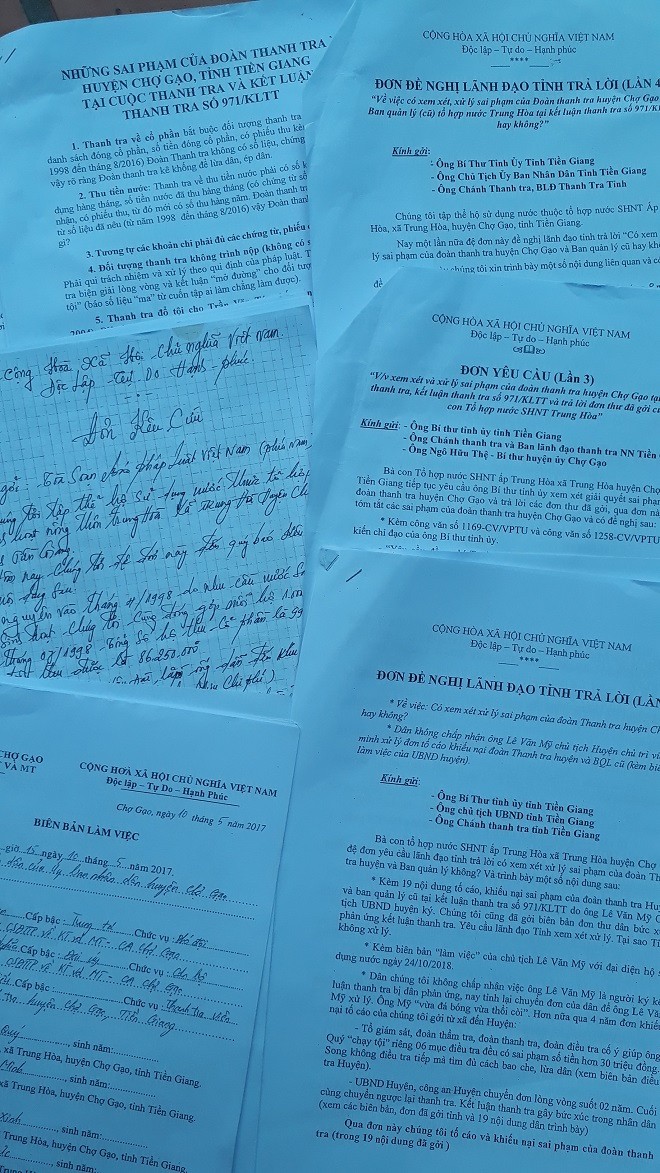 NHỮNG SAI PHẠM CỦA ĐOÀN THANH TRA
HUYỆN CHỢ GẠO, TỈNH TIỀN GIANG
TẠI CUỘC THANH TRA VÀ KẾT LUẬN
THANH TRA SỐ 971/KLTT
1. Thanh tra về cổ phần bắt buộc đối tượng thanh tra
danh sách đóng cổ phần, số tiền đóng cổ phần, có phiếu thu kèm
1998 đến tháng 8/2016) Đoàn Thanh tra không có số liệu, chứng
vậy rõ ràng Đoàn thanh tra kê khống để lừa dân, ép dân.
2. Thu tiền nước: Thanh tra về thu tiền nước phải có số k
dụng hàng tháng, số tiền nước đã thu hàng tháng (có chứng từ số
nhận, có phiếu thu, từ đó mới có số thu hàng năm. Đoàn thanh tr
từ số liệu đã nêu (từ năm 1998 đến tháng 8/2016) vậy Đoàn thanh
gì?
3. Tương tự các khoản chi phải đủ các chứng từ, phiếu
4. Đối tượng thanh tra không trình nộp (không có s
Phải qui trách nhiệm và xử lý theo qui định của pháp luật. T
tra biện giải lòng vòng và kết luận "mở đường" cho đối tượ
tội" (báo số liệu "ma" từ cuốn tập ai làm chẳng làm được).
5. Thanh tra đổ tội cho Trần
CỘNG HÒA XÃ HỘI CHỦ NGHĨA VIỆT NAM
Độc lập – Tự do – Hạnh phúc
****
ĐƠN ĐỀ NGHỊ LÃNH ĐẠO TỈNH TRẢ LỜI (LẦN 4
"Về việc có xem xét, xử lý sai phạm của Đoàn thanh tra huyện Chợ Gạo
Ban quản lý (cũ) tổ hợp nước Trung Hòa tại kết luận thanh tra số 971/K
hay không?"
Kính gởi:
- Ông Bí Thư Tỉnh Ủy Tỉnh Tiền Giang
- Ông Chủ Tịch Ủy Ban Nhân Dân Tỉnh Tiền Giang
- Ông Chánh Thanh tra, BLĐ Thanh Tra Tỉnh
Chúng tôi tập thể hộ sử dụng nước thuộc tổ hợp nước SHNT Ấp
Hòa, xã Trung Hòa, huyện Chợ Gạo, tỉnh Tiền Giang.
Nay một lần nữa đệ đơn này đề nghị lãnh đạo tỉnh trả lời "Có xem
lý sai phạm của đoàn thanh tra huyện Chợ Gạo và Ban quản lý cũ hay kh
chúng tôi xin trình bày một số nội dung liên quan và c
Cộng Hòa Xã Hội Chủ nghĩa Việt Nam.
Độc lập - Tự Do Hạnh phúc.
Đơn Kêu Cứu
gởi: Tòa Soạn Báo Pháp Luật Việt Nam
chúng tôi tập thể hộ sử dụng nước thuộc tổ hợp
hoạt nông thôn Trung Hòa xã Trung Hòa huyện Chợ
nay chúng tôi đệ đơn này đến quý báo
nguyên vào tháng 4/1998 do nhu cầu nước
hoạt chúng tôi cùng đóng góp mỗi hộ
1998. Tổng số hộ thu cổ phần là 99
86.250.000đ
CỘNG HÒA XÃ HỘI CHỦ NGHĨA VIỆT NAM
Độc lập – Tự do – Hạnh phúc
ĐƠN YÊU CẦU (Lần 3)
"V/v xem xét và xử lý sai phạm của đoàn thanh tra huyện Chợ Gạo tạ
thanh tra, kết luận thanh tra số 971/KLTT và trả lời đơn thư đã gởi c
con Tổ hợp nước SHNT Trung Hòa"
Kính gửi: - Ông Bí thư tỉnh ủy tỉnh Tiền Giang
- Ông Chánh thanh tra và Ban lãnh đạo thanh tra NN Tiền
- Ông Ngô Hữu Thệ - Bí thư huyện ủy Chợ Gạo
Bà con Tổ hợp nước SHNT ấp Trung Hòa xã Trung Hòa huyện Chợ
Tiền Giang tiếp tục yêu cầu ông Bí thư tỉnh ủy xem xét giải quyết sai phạ
đoàn thanh tra huyện Chợ Gạo và trả lời các đơn thư đã gởi, qua đơn nà
tóm tắt các sai phạm của đoàn thanh tra huyện Chợ Gạo và có đề nghị sau:
* Kèm công văn số 1169-CV/VPTU và công văn số 1258-CV/VPTU
kiến chỉ đạo của ông Bí thư tỉnh ủy.
CHỢ GẠO
VÀ MT
CỘNG HOÀ XÃ HỘI CHỦ NGHĨA VIỆT NAM
Độc lập – Tự Do – Hạnh Phúc
Chợ Gạo, ngày 10 tháng 5 năm 2017
BIÊN BẢN LÀM VIỆC
giờ 15 ngày 10 tháng 5 năm 2017.
dân của Ủy ban nhân dân huyện Chợ Gạo
Cấp bậc: Trung tá Chức vụ: Phó đội
CSĐTTP về KT và MT - CA Chợ Gạo
Cấp bậc: Đại úy Chức vụ: Cán bộ
CSĐTTP về KT và MT - CA Chợ Gạo.
Cấp bậc: Chức vụ: Thanh tra viên
tra huyện Chợ Gạo, Tiền Giang
Quý, sinh năm:
, xã Trung Hòa, huyện Chợ Gạo, tỉnh Tiền Giang.
Minh, sinh năm:
xã Trung Hòa, huyện Chợ Gạo, tỉnh Tiền Giang.
Xinh, sinh năm:
Trung Hòa, huyện Chợ Gạo, tỉnh Tiền Giang.
, sinh năm:
CỘNG HÒA XÃ HỘI CHỦ NGHĨA VIỆT NAM
Độc lập – Tự do – Hạnh phúc
****
ĐƠN ĐỀ NGHỊ LÃNH ĐẠO TỈNH TRẢ LỜI (LẦN
* Về việc: Có xem xét xử lý sai phạm của đoàn Thanh tra huyện Ch
hay không?
* Dân không chấp nhận ông Lê Văn Mỹ chủ tịch Huyện chủ trì vi
minh xử lý đơn tố cáo khiếu nại Đoàn thanh tra huyện và BQL cũ (kèm biê
làm việc của UBND huyện).
Kính gửi:
- Ông Bí Thư tỉnh ủy tỉnh Tiền Giang
- Ông chủ tịch UBND tỉnh Tiền Giang
- Ông Chánh thanh tra tỉnh Tiền Giang
Bà con tổ hợp nước SHNT ấp Trung Hòa xã Trung Hòa huyện Chợ
đệ đơn yêu cầu lãnh đạo tỉnh trả lời có xem xét xử lý sai phạm của đoàn Th
tra huyện và Ban quản lý không? Và trình bày một số nội dung sau:
* Kèm 19 nội dung tố cáo, khiếu nại sai phạm của đoàn thanh tra Hu
và ban quản lý cũ tại kết luận thanh tra số 971/KLTT do ông Lê Văn Mỹ C
tịch UBND huyện ký. Chúng tôi cũng đã gởi biên bản đơn thư dân bức x
phản ứng kết luận thanh tra. Yêu cầu lãnh đạo Tỉnh xem xét xử lý. Tại sao Tỉ
không xử lý.
* Kèm biên bản "làm việc" của chủ tịch Lê Văn Mỹ với đại diện hộ s
dụng nước ngày 24/10/2018.
* Dân chúng tôi không chấp nhận việc ông Lê Văn Mỹ là người ký kế
luận thanh tra bị dân phản ứng, nay tỉnh lại chuyển đơn của dân để ông Lê Vă
Mỹ xử lý. Ông Mỹ "vừa đá bóng vừa thổi còi". Hơn nữa qua 4 năm đơn khiế
nại tố cáo của chúng tôi gởi từ xã đến Huyện:
- Tổ giám sát, đoàn thẩm tra, đoàn thanh tra, đoàn điều tra cố ý giúp ông
Quý "chạy tội" riêng 06 mục điều tra đều có sai phạm số tiền hơn 30 triệu đồng.
Song không điều tra tiếp mà tìm đủ cách bao che, lừa dân (xem biên bản điều
tra Huyện).
- UBND Huyện, công an Huyện chuyển đơn lòng vòng suốt 02 năm. Cuối
cùng chuyển ngược lại thanh tra. Kết luận thanh tra gây bức xúc trong nhân dân
(xem các biên bản, đơn đã gởi tỉnh và 19 nội dung dân trình bày)
Qua đơn này chúng tôi tố cáo và khiếu nại sai phạm của đoàn thanh
tra (trong 19 nội dung đã gởi )